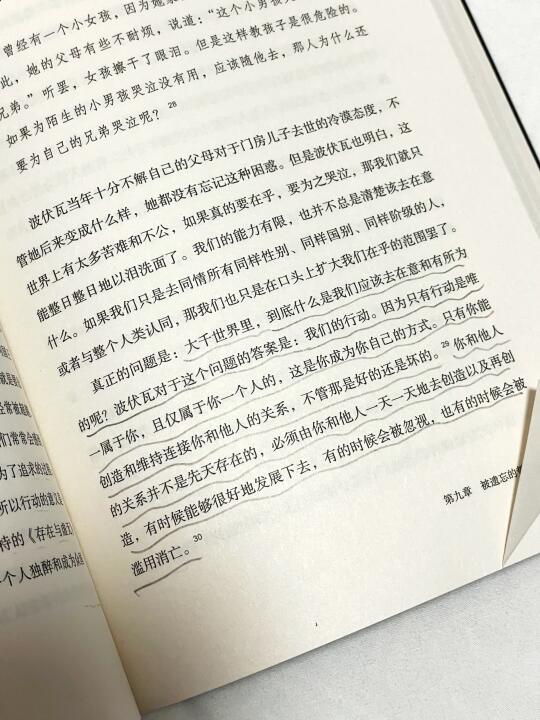 曾经有一个小女孩，因为她家
此，她的父母有些不耐烦，说道：“这个小男孩
兄弟。”听罢，女孩擦干了眼泪。但是这样教孩子是很危险的。
如果为陌生的小男孩哭泣没有用，应该随他去，那人为什么还
要为自己的兄弟哭泣呢？28
波伏瓦当年十分不解自己的父母对于门房儿子去世的冷漠态度，不
管她后来变成什么样，她都没有忘记这种困惑。但是波伏瓦也明白，这
世界上有太多苦难和不公，如果真的要在乎，要为之哭泣，那我们就只
能整日整日地以泪洗面了。我们的能力有限，也并不总是清楚该去在意
什么。如果我们只是去同情所有同样性别、同样国别、同样阶级的人，
或者与整个人类认同，那我们也只是在口头上扩大我们在乎的范围罢了。
真正的问题是：大千世界里，到底什么是我们应该去在意和有所为
的呢？波伏瓦对于这个问题的答案是：我们的行动。因为只有行动是唯
一属于你，且仅属于你一个人的，这是你成为你自己的方式。只有你能
创造和维持连接你和他人的关系，不管那是好的还是坏的。29 你和他人
的关系并不是先天存在的，必须由你和他人一天一天地去创造以及再创
造，有时候能够很好地发展下去，有的时候会被忽视，也有的时候会被
滥用消亡。30
第九章 被遗忘的
经常被
们常常
为了追求的
所以行动的意义
持的《存在与虚无
个人独醉和成为